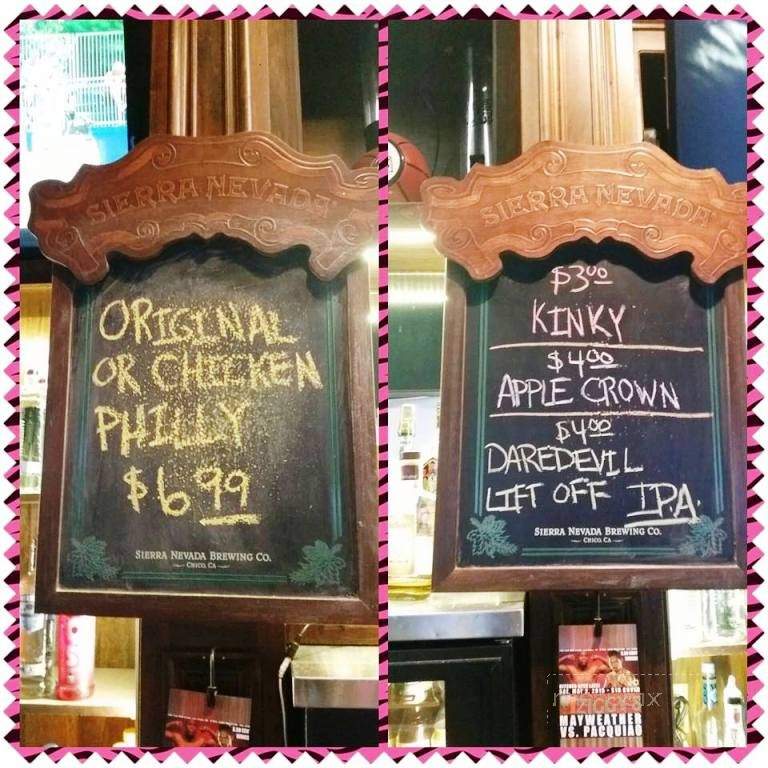 SIERRA NEVADA
ORIGINAL
OR CHICKEN
PHILLY
$6.99
SIERRA NEVADA BREWING CO.
CHICO, CA
SIERRA NEVADA
$3.00
KINKY
$4.00
APPLE CROWN
$4.00
DAREDEVIL
LIFT OFF I.P.A.
SIERRA NEVADA BREWING CO.
CHICO, CA
SAT. MAY 2, 2015 - $10 COVER
MAYWEATHER
VS. PACQUIAO